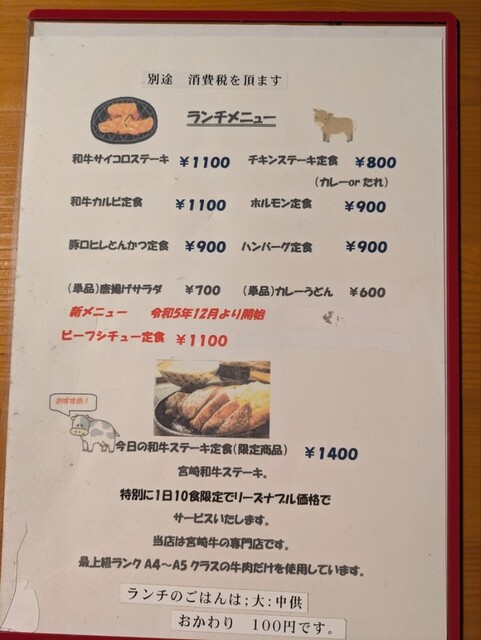 別途 消費税を頂ます
ランチメニュー
和牛サイコロステーキ ￥1100 チキンステーキ定食 ￥800
(カレーor たれ)
和牛カルビ定食 ￥1100 ホルモン定食 ￥900
豚ロヒレとんかつ定食 ￥900 ハンバーグ定食 ￥900
(単品)唐揚げサラダ ￥700 (単品)カレーうどん ￥600
新メニュー 令和5年12月より開始
ビーフシチュー定食 ￥1100
おすすめ！
今日の和牛ステーキ定食(限定商品) ￥1400
宮崎和牛ステーキ。
特別に1日10食限定でリーズナブル価格で
サービスいたします。
当店は宮崎牛の専門店です。
最上級ランク A4～A5 クラスの牛肉だけを使用しています。
ランチのごはんは;大:中供
おかわり 100円です。